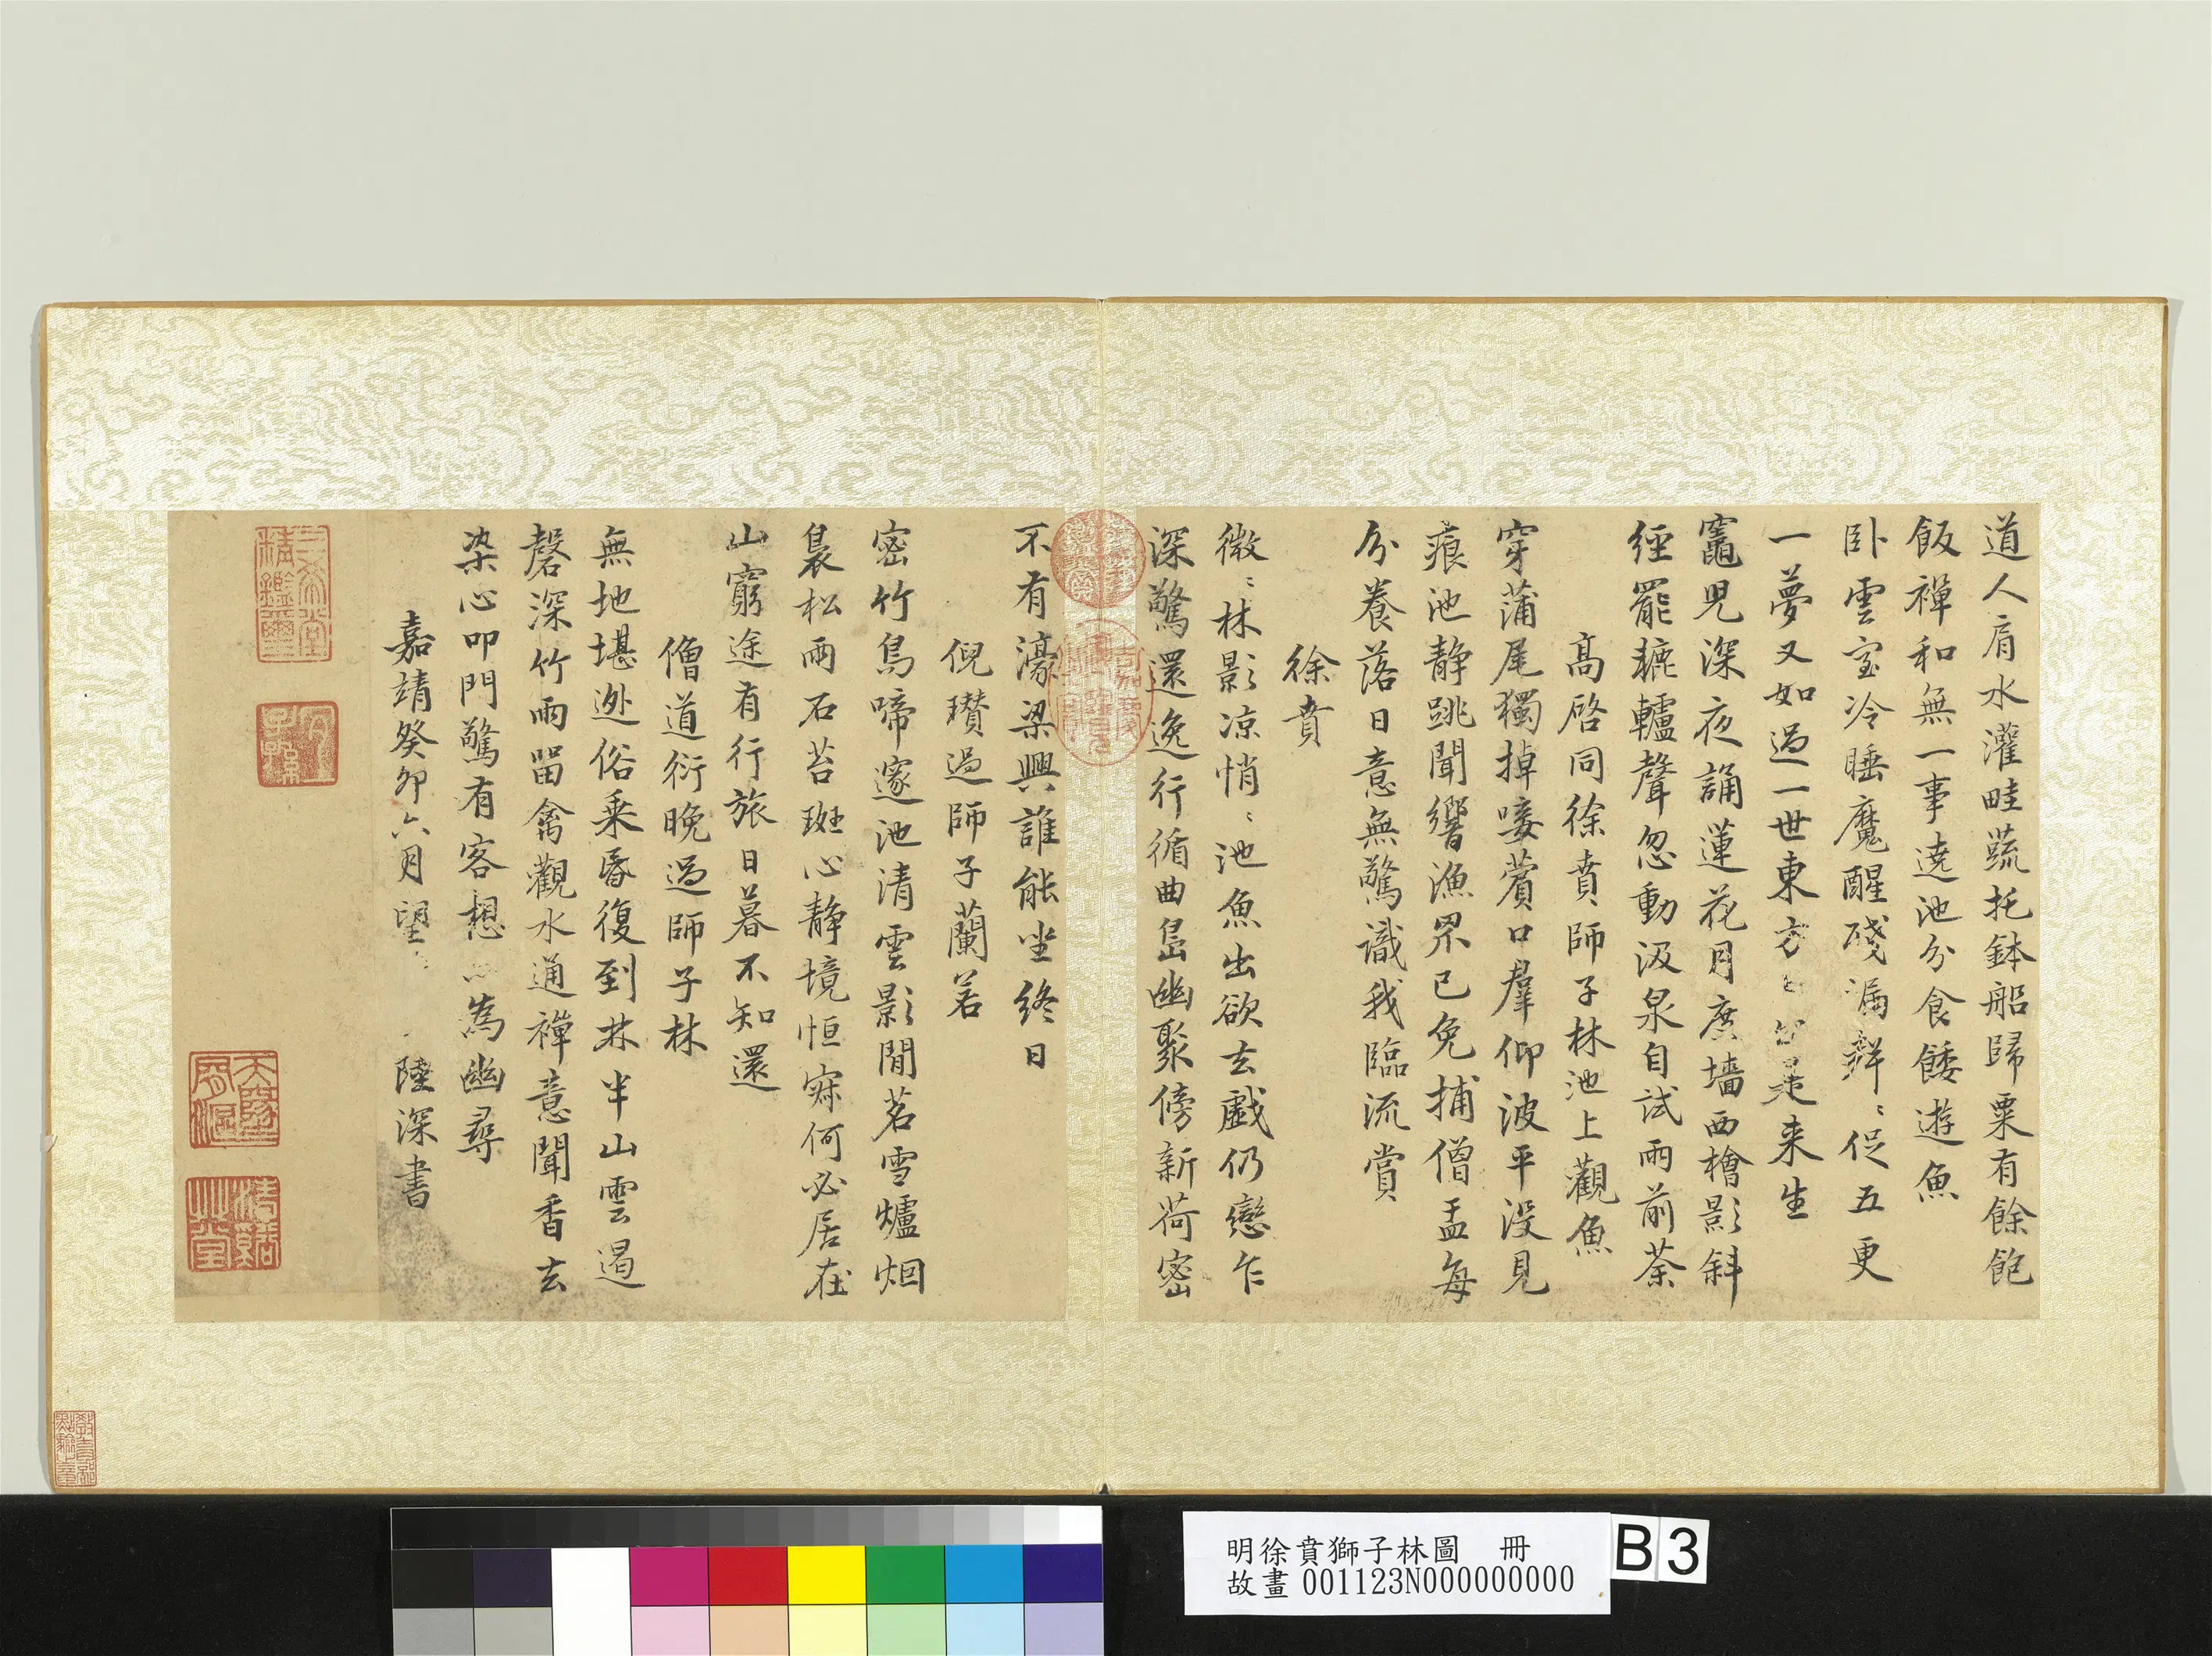 道人肩水灌畦蔬托鉢船歸粟有餘飽
飯禪和無一事遶池分食餧遊魚
卧雲室冷睡魔醒殘漏鮮〻促五更
一夢又如過一世東方是来生
竈兒深夜誦蓮花月度墻西檜影斜
經罷轆轤聲忽動汲泉自試雨前茶
高啓同徐賁師子林池上觀魚
穿蒲尾獨掉唼薲口羣仰波平没見
痕池静跳聞響漁罘已免捕僧盂每
分養落日意無驚識我臨流賞
徐賁
微〻林影凉悄〻池魚出欲去戲仍戀乍
深驚還逸行循曲島幽聚傍新荷密
不有濠梁興誰能坐終日
倪瓚過師子蘭若
密竹鳥啼邃池清雲影閒茗雪爐烟
裊松雨石苔斑心静境恒寂何必居在
山窮途有行旅日暮不知還
僧道衍晚過師子林
無地堪逃俗乘昏復到林半山雲遏
磬深竹雨留禽觀水通禪意聞香去
染心叩門驚有客想為幽尋
嘉靖癸卯六月望 陸深書
三希堂
精鑑璽
宜子孫
明徐賁獅子林圖 冊
故畫 001123N000000000
B 3